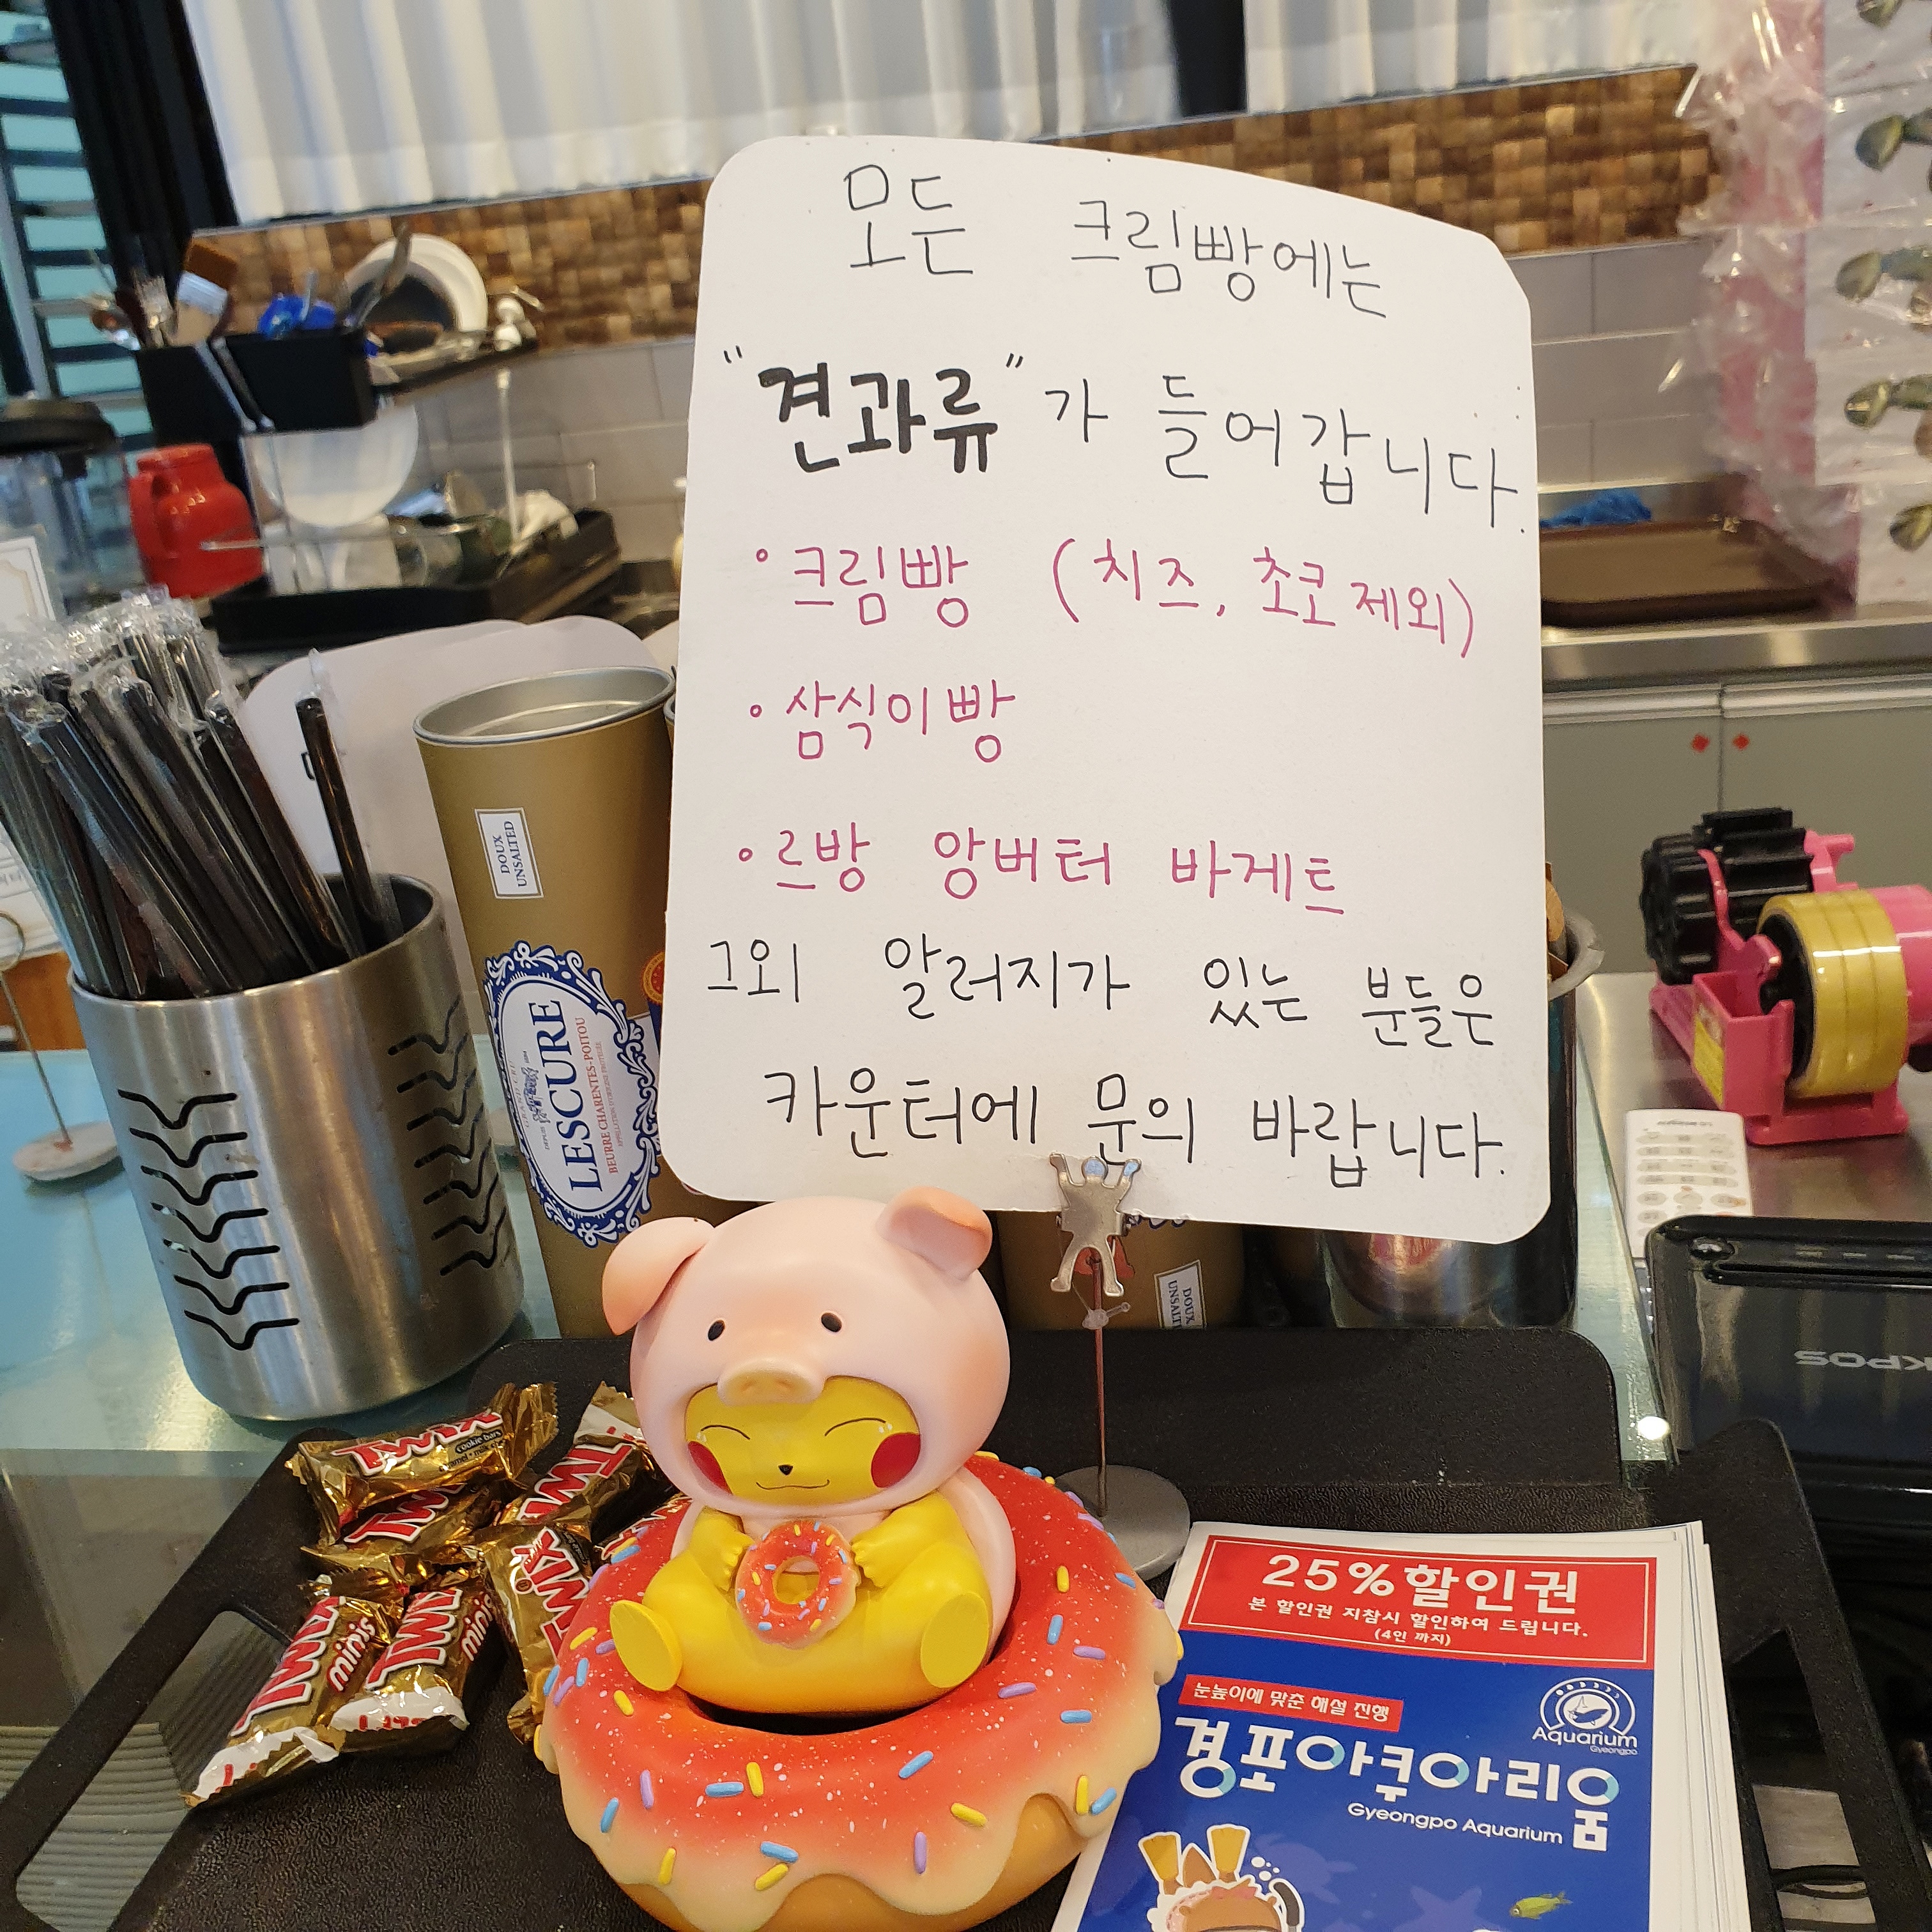 모든 크림빵에는
"견과류"가 들어갑니다.
• 크림빵 (치즈, 초코 제외)
• 삼식이빵
• 르방 앙버터 바게트
그외 알러지가 있는 분들은
카운터에 문의 바랍니다.
DOUX
UNSALTED
LESCURE
BEURRE CHARENTES-POITOU
DOUX
KPOS
TWIX
cookie bars
TWIX
TWIX
TWIX
TWIX
minis
TWIX
minis
25%할인권
본 할인권 지참시 할인하여 드립니다.
(4인 까지)
눈높이에 맞춘 해설 진행
Aquarium
Gyeongpo
경포아쿠아리움
Gyeongpo Aquarium